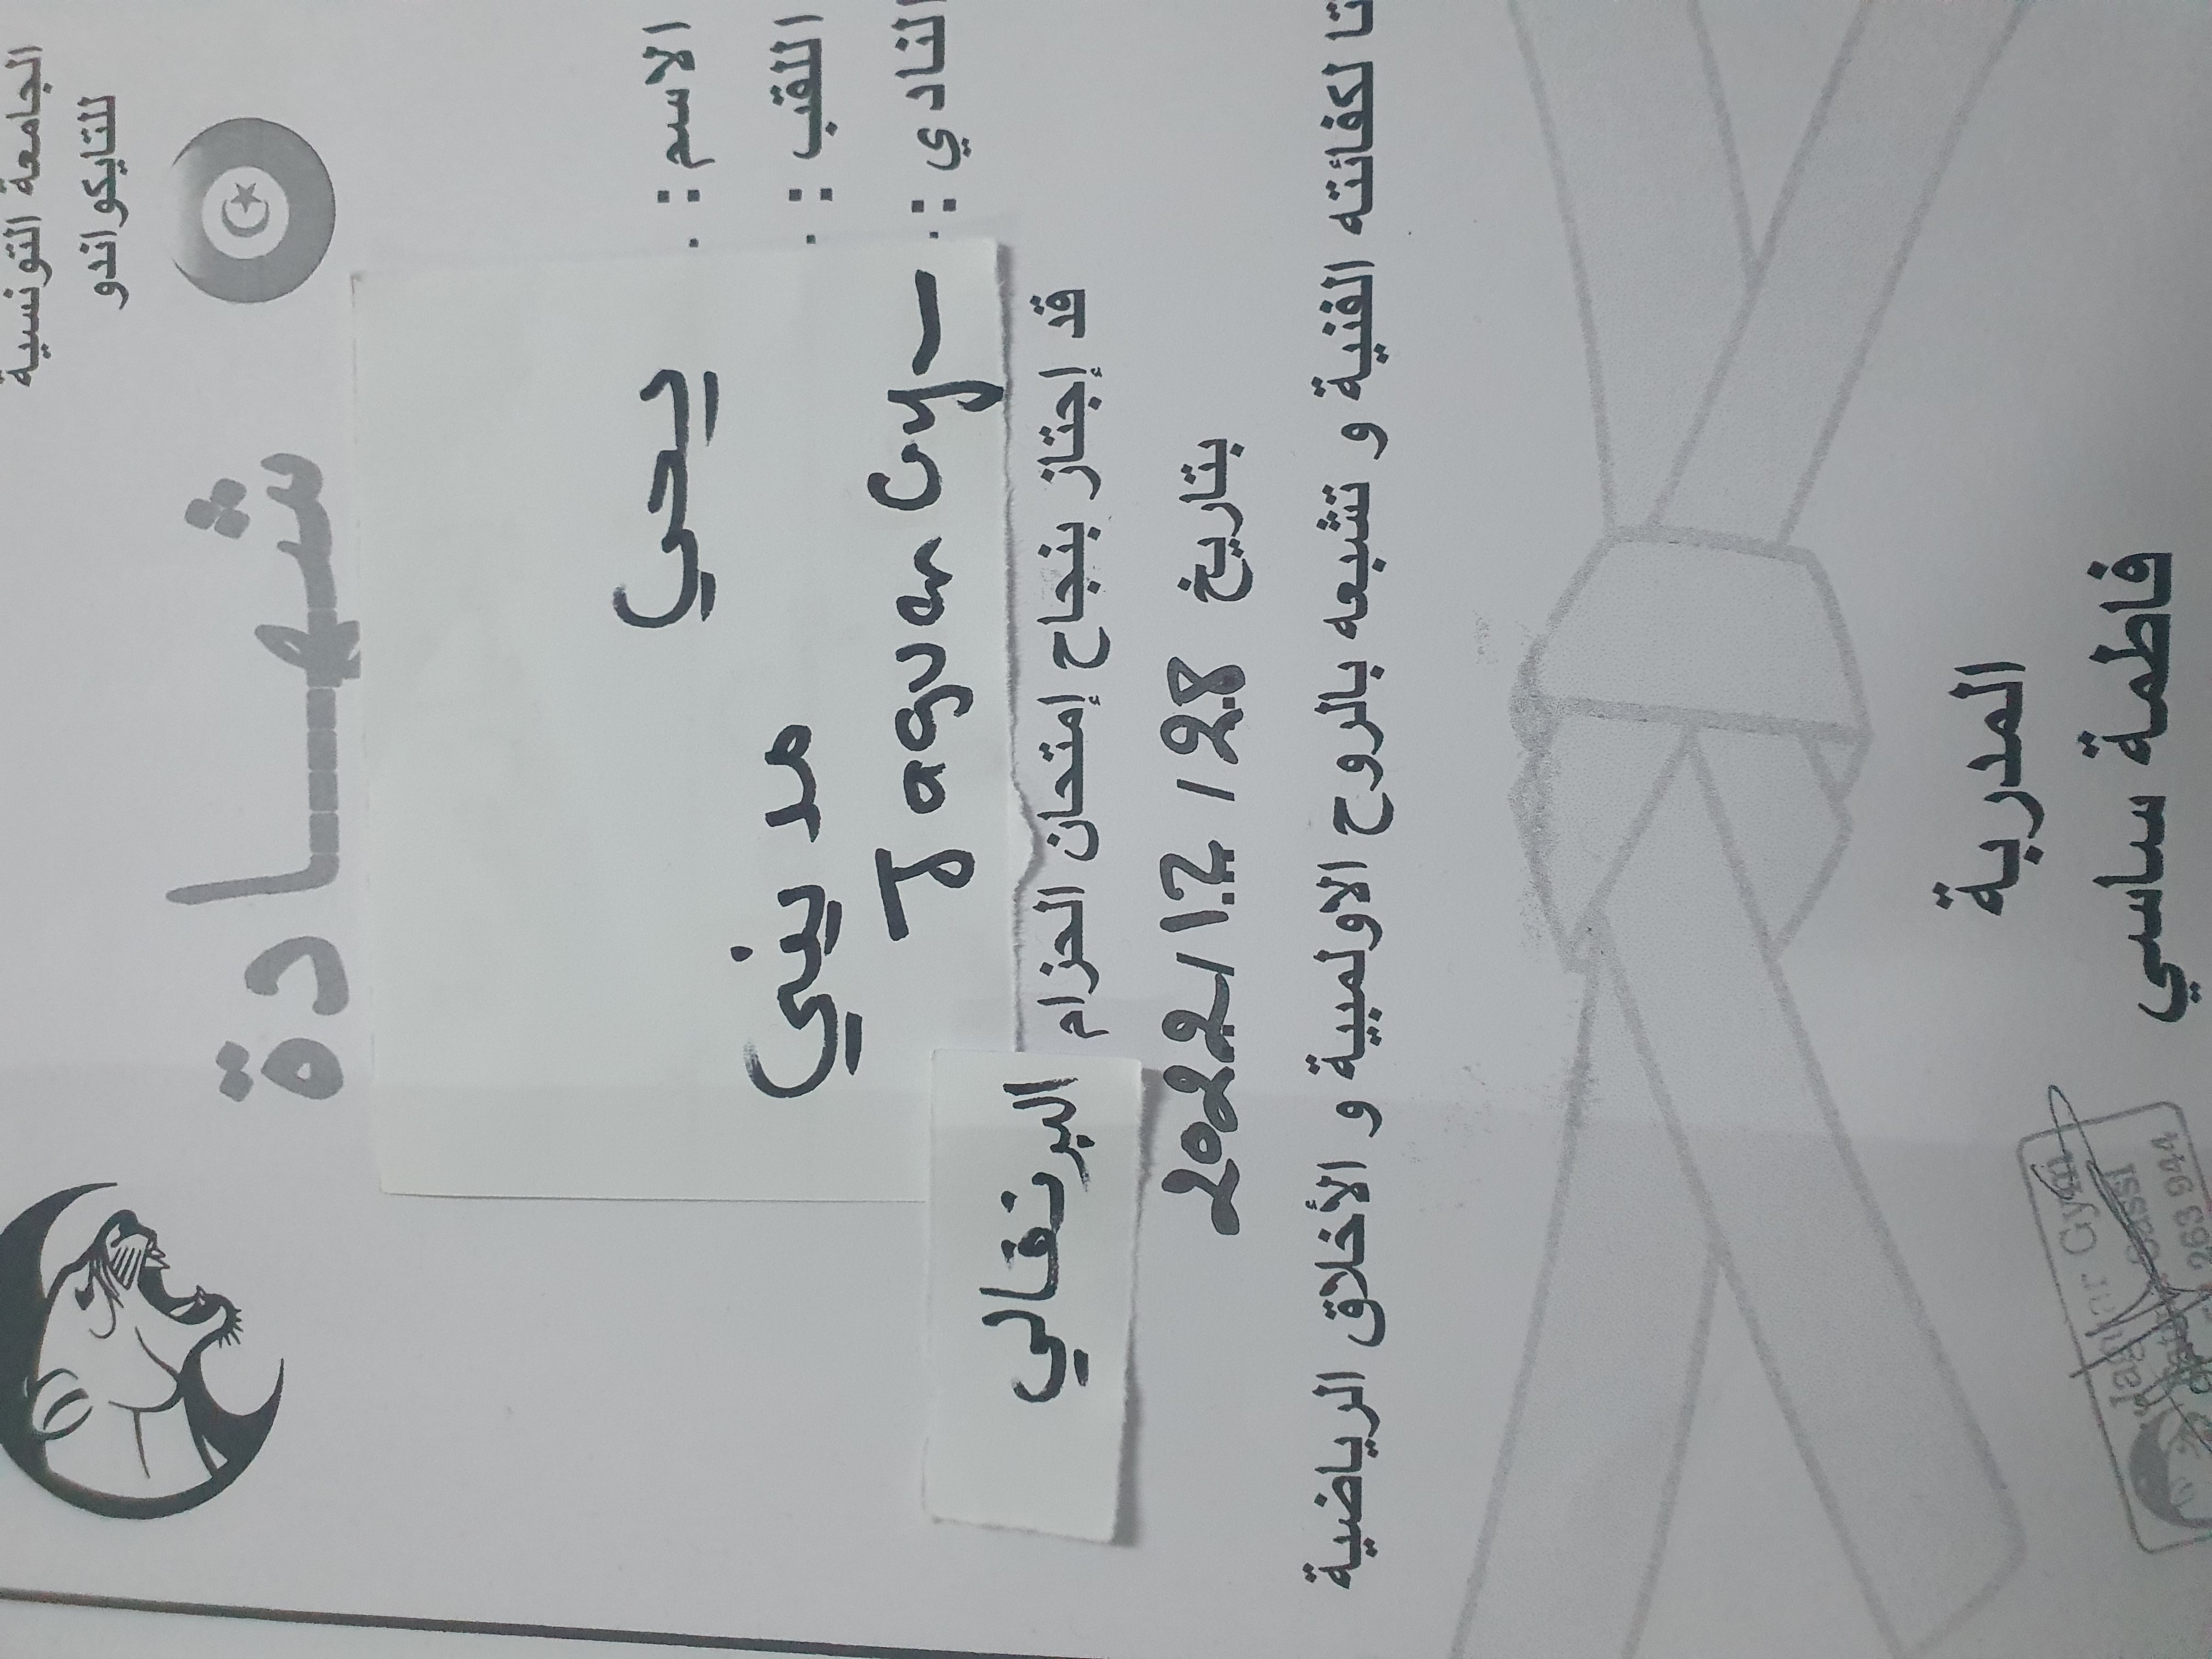 الجامعة التونسية
للتايكواندو
شهادة
الاسم : : . يحي
اللقب : : . مديني
النادي : : . Jaguar Gy
قد إجتاز بنجاح إمتحان الحزام البرتقالي
بتاريخ 2022/12/28
تا لكفائته الفنية و تشبعه بالروح الاولمبية و الأخلاق الرياضية
المدربة
فاطمة ساسي
Jaguar Gym
Sassi
263 944